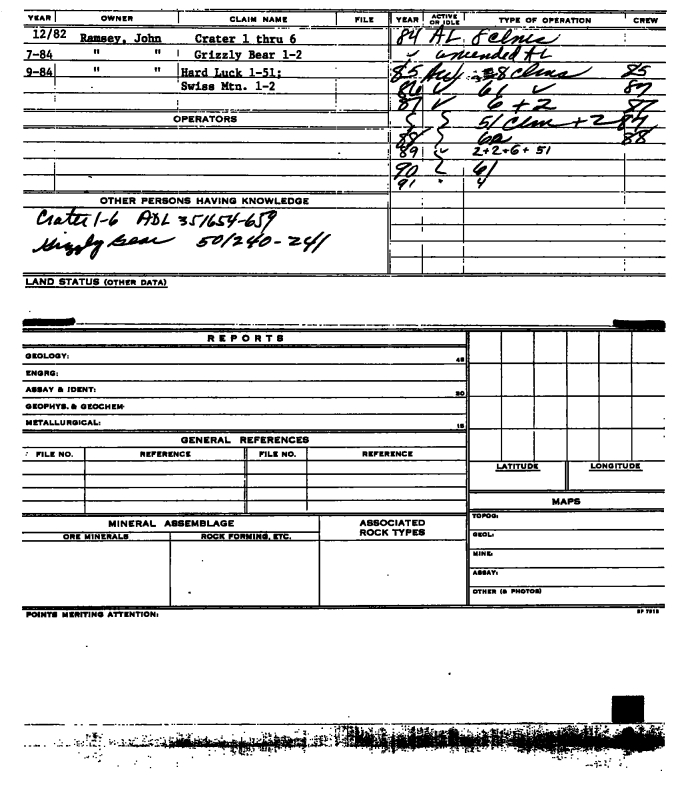 YEAR OWNER CLAIM NAME FILE YEAR ACTIVE OR IDLE TYPE OF OPERATION CREW
12/82 Ramsey, John Crater 1 thru 6 84 AL 8 clms
7-84 " " Grizzly Bear 1-2 amended AL
9-84 " " Hard Luck 1-51; 85 8 clms 85
Swiss Mtn. 1-2 86 ✓ 61 ✓ 87
87 ✓ 6 + 2 87
OPERATORS 51 clm + 2 87
88 62 88
89 2+2+6+51
90 61
91 " 4
OTHER PERSONS HAVING KNOWLEDGE
Crater 1-6 ADL 351654-659
Grizzly Bear 501240-241
LAND STATUS (OTHER DATA)
REPORTS
GEOLOGY: 45
ENGRG:
ASSAY & IDENT: 30
GEOPHYS. & GEOCHEM
METALLURGICAL: 15
GENERAL REFERENCES
FILE NO. REFERENCE FILE NO. REFERENCE
LATITUDE LONGITUDE
MAPS
MINERAL ASSEMBLAGE ASSOCIATED ROCK TYPES
ORE MINERALS ROCK FORMING, ETC.
TOPOG:
GEOL:
MINE:
ASSAY:
OTHER (& PHOTOS)
POINTS MERITING ATTENTION: